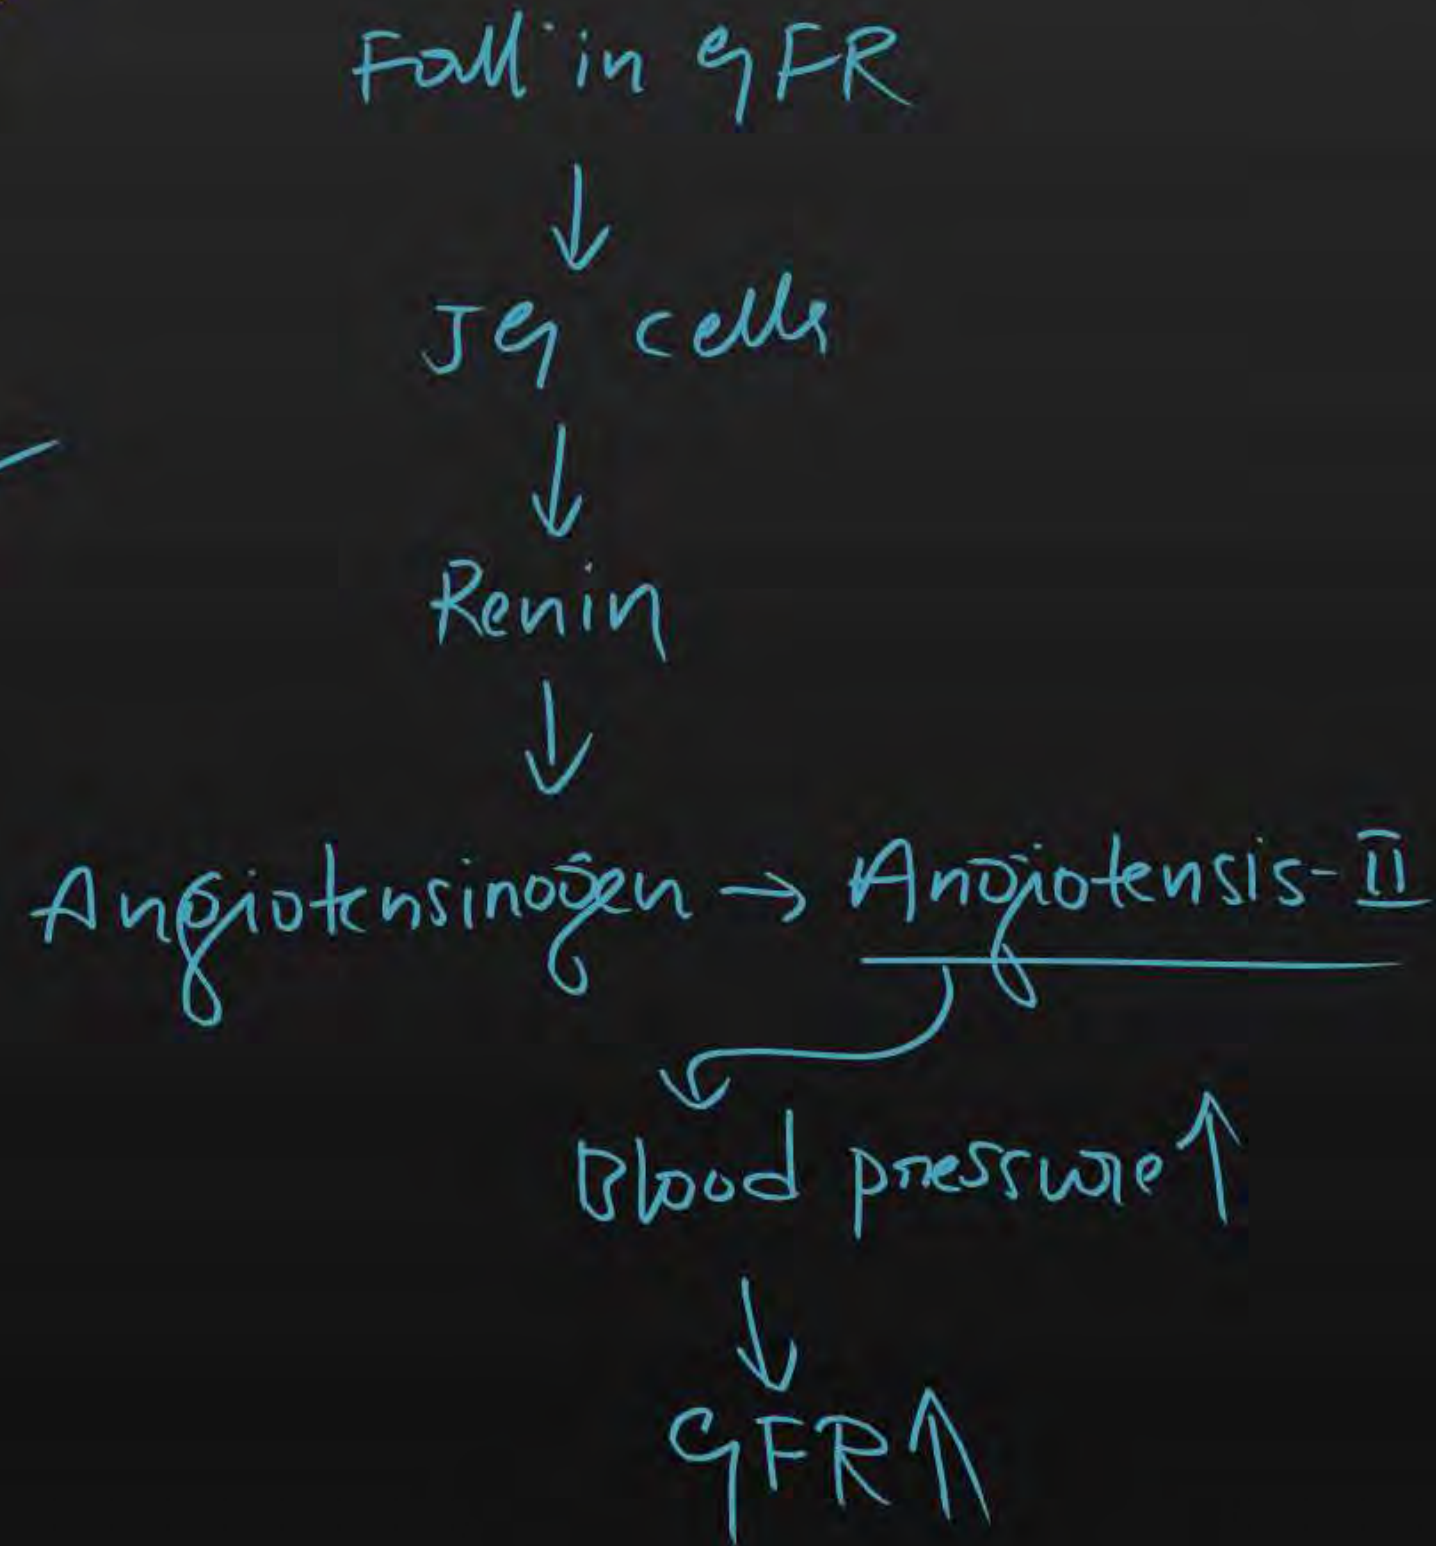 Fall in GFR
↓
JG cells
↓
Renin
↓
Angiotensinogen → Angiotensis-II
Blood pressure ↑
↓
GFR ↑